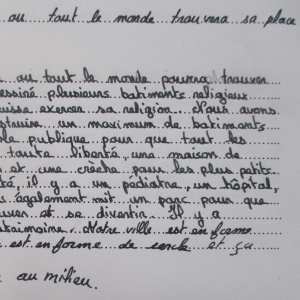 ou tout le monde trouvera sa place
ou tout le monde pourra trouver
essiné plusieurs batiments religieux
uisse exercer sa religion. Nous avons
struire un maximum de batiments
ole publique pour que tout les
toute liberté, une maison de
et une crèche pour les plus petits
té, il y a un pediatre, un hôpital,
s également mit un parc pour que
uver et se divertir. Il y a
atrimoine. Notre ville est en forme
est en forme de cercle et ça
au milieu.